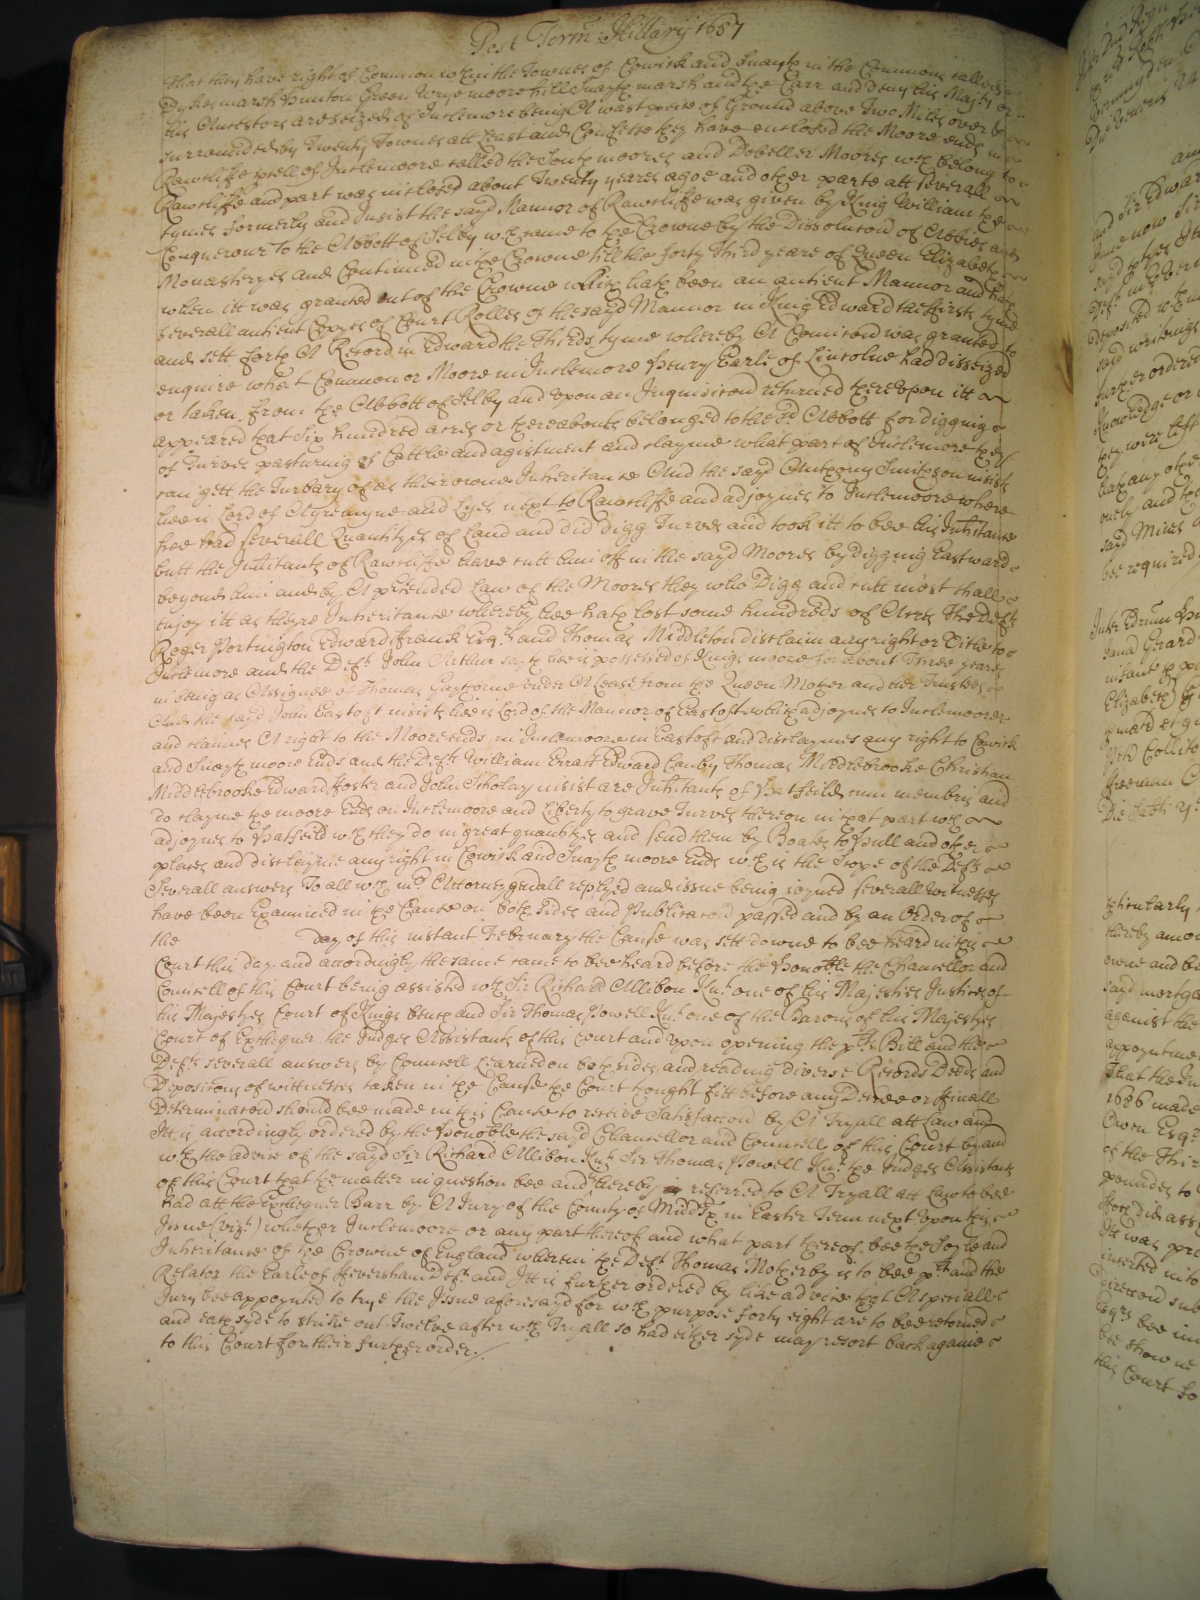 Post Term: Hillary 1687
that they have right of Common wthin the Townes of Cowick and Snayth in the Commons called
Dykesmarsh Hunton Green Wrye moore hill Snayth marsh and the Carr and deny his Majty or
his Ancestors are seized of Inclemore being A wast peice of Ground above Two Miles over
surrounded by Twenty Townes att Least and Confesse they have enclosed the Moore ends in
Rawcliffe pcell of Inclemoore called the South moores and Dobeller Moores wch belong to
Rawcliffe and part was inclosed about Twenty yeares agoe and other parte att severall
tymes formerly and Insist the sayd Mannor of Rawcliffe was given by King William the
Conquerour To the Abbott of Selby wch came to the Crowne by the Dissolucion of Abbies and
Monasteryes and Continued in the Crowne till the forty third yeare of Queen Elizabeth
when itt was granted out of the Crowne which hath been an antient Mannor and hath
severall antient Copyes of Court Rolles of the sayd Mannor in King Edward the first tyme
and sett forth A Record in Edward the Thirds tyme whereby A Comission was granted to
enquire what Common or Moore in Inclemore Henry Earle of Lincolne had disseized
or taken from the Abbott of Selby and upon an Inquisicion returned thereupon itt
appeared that Six hundred acres or thereabouts belonged to the sd Abbott for digging
of Turves pasturing of Cattle and agistment and clayme what part of Inclemore they
can gett the Turbary of as their owne Inheritance And the sayd Anthony Smithson insists
hee is Lord of Ayremyne and Lyes next to Rawcliffe and adjoynes to Inclemoore where
hee had severall Quantityes of Land and did digg Turves and took itt to bee his Inhitance
butt the Inhitants of Rawcliffe have cutt him off in the sayd Moores by digging Eastward
beyond him and by A pretended Law of the Moores they who Digg and cutt most shall
enjoy itt as theire Inheritance whereby hee hath lost some hundreds of Acres The Defts
Roger Portington Edward ffranck Esqrs and Thomas Middleton disclaim any right or Title to
Inclemore and the Deft John Arthur sayth hee is possessed of Kings moore for about Three yeares
in being as Assignee of Thomas Gaythorne under A Lease from the Queen Mother and her Trustees
And the sayd John Eastoft insists hee is Lord of the Mannor of Eastoft which adjoynes to Inclemoore
and claimes A right to the Moore ends in Inclemoore in Eastoft and disclaymes any right to Cowick
and Snayth moore Ends and the Defts William Erratt Edward Canby Thomas Middlebrooke Christian
Middlebrooke Edward ffoster and John Scholay insist are Inhitants of Hatfeild cum membris and
do clayme the moore Ends on Inclemoore and Liberty to grave Turves thereon in that part wch
adjoynes to Hatfeild wch they do in great quantityes and send them by Boates to Hull and other
places and disclayme any right in Cowick and Snayth moore Ends wch is the Scope of the Defts
Severall answers To all wch mr Attorney gnrall replyed and issue being joyned severall witnesses
have been Examined in the Cause on both sides and Publicacion passed and by an Order of
the day of this instant February the Cause was sett downe to bee heard in this
Court this day and accordingly the same came to bee heard before the Honoble the Chancellor and
Councell of this Court being assisted wth Sir Richard Allibon Knt one of his Majesties Justices of
his Majestyes Court of Kings bench and Sir Thomas Powell Knt one of the Barons of his Majestyes
Court of Exchequer the Judges Assistants of this Court and upon opening the plts Bill and the
Defts severall answers by Councell Learned on both sides and reading diverse Records Deeds and
Depositions of wittnesses taken in the Cause the Court thought fitt before any Decree or ffinall
Determinacion should bee made in this Cause to receive Satisfaccion by A Tryall att Law and
Itt is accordingly ordered by the Honoble the sayd Chancellor and Councell of this Court by and
wth the advice of the sayd Sir Richard Allibon Knt Sir Thomas Powell Knt the Judges Assistants
of this Court that the matter in question bee and thereby is referred to A Tryall att Law to bee
had att the Exchequer Barr by A Jury of the County of Middx in Easter Term next upon this
Issue (vizt) whether Inclemoore or any part thereof and what part thereof bee the Soyle and
Inheritance of the Crowne of England wherein the Deft Thomas Motherby is to bee plt and the
Relator the Earle of ffeversham Deft and Itt is further ordered by like advice that A speciall
Jury bee appoynted to trye the Issue aforesayd for wch purpose forty eight are to bee returned
and each syde to strike out Twelve after wch Tryall so had either syde may resort back againe
to this Court for their further order